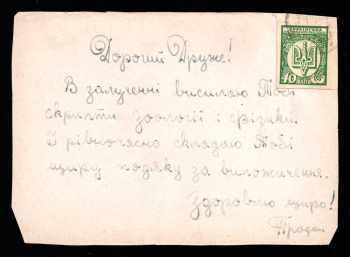 Дорогий Друже!
В залученні висилаю Тобі
скрипти зоології і фізики.
І рівночасно складаю Тобі
щиру подяку за випоження.
Здоровлю щиро!
40